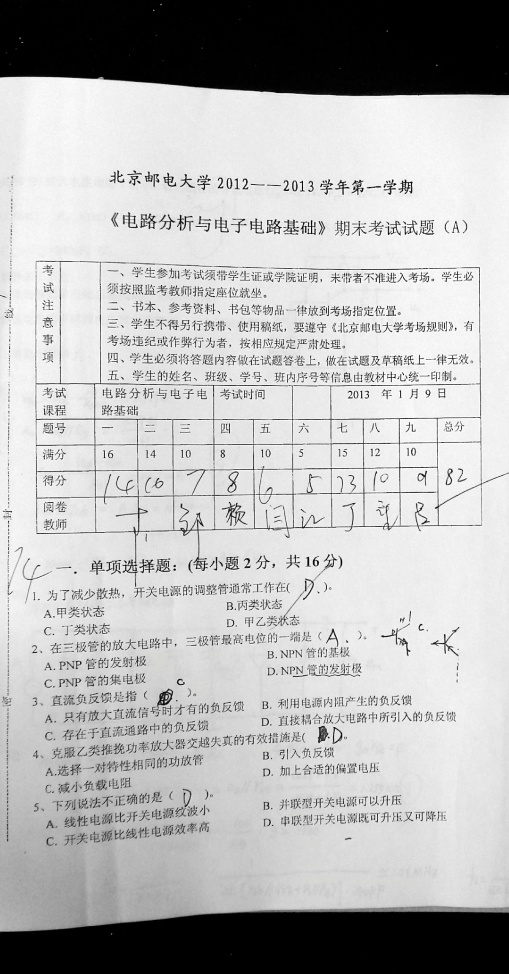 北京邮电大学 2012——2013 学年第一学期
《电路分析与电子电路基础》期末考试试题（A）
考试注意事项
一、学生参加考试须带学生证或学院证明，未带者不准进入考场。学生必
须按照监考教师指定座位就坐。
二、书本、参考资料、书包等物品一律放到考场指定位置。
三、学生不得另行携带、使用稿纸，要遵守《北京邮电大学考场规则》，有
考场违纪或作弊行为者，按相应规定严肃处理。
四、学生必须将答题内容做在试题答卷上，做在试题及草稿纸上一律无效。
五、学生的姓名、班级、学号、班内序号等信息由教材中心统一印制。
考试课程 电路分析与电子电路基础 考试时间 2013 年 1 月 9 日
题号 一 二 三 四 五 六 七 八 九 总分
满分 16 14 10 8 10 5 15 12 10
得分 14 10 7 8 6 5 13 10 9 82
阅卷教师
14
一．单项选择题：(每小题 2 分，共 16 分)
1. 为了减少散热，开关电源的调整管通常工作在( D. )。
A.甲类状态 B.丙类状态
C. 丁类状态 D. 甲乙类状态
2、在三极管的放大电路中，三极管最高电位的一端是（ A. ）。
A. PNP 管的发射极 B. NPN 管的基极
C. PNP 管的集电极 D. NPN 管的发射极
3、直流负反馈是指（ C ）。
A. 只有放大直流信号时才有的负反馈 B. 利用电源内阻产生的负反馈
C. 存在于直流通路中的负反馈 D. 直接耦合放大电路中所引入的负反馈
4、克服乙类推挽功率放大器交越失真的有效措施是( D )。
A.选择一对特性相同的功放管 B. 引入负反馈
C. 减小负载电阻 D. 加上合适的偏置电压
5、下列说法不正确的是（ D ）。
A. 线性电源比开关电源纹波小 B. 并联型开关电源可以升压
C. 开关电源比线性电源效率高 D. 串联型开关电源既可升压又可降压